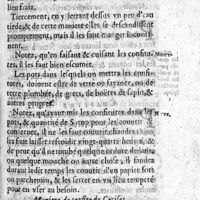 lieu frais.
Tiercement, en y iettant dessus vn peu d'au
tiede, & de cette maniere elles se descendissent
promptement, mais il les faut manger inconti-
nent.
Notez, qu'en faisant & cuisant les confitu-
res, il les faut bien escumer.
Les pots dans lesquels on mettra les confi-
tures, doiuent estre de verre ou fayance, ou de
terre plombée, de grets, de boistes de sapin, &
autres propres.
Notez, qu'ayant mis les confitures dans les
pots, & quantité de Syrop pour les humecter &
conseruer, il ne les faut couurir chaudes, mais
les faut laisser refroidir vingt-quatre heures, &
de peur qu'il ne tombe quelque ordure dedans,
ou quelque mouche ou autre chose, il faudra
durant ledit temps les couurir d'vn papier fort
ou parchemin, & les serrer en vn lieu temperé
pour en vser au besoin.
Maniere de confire de Cerises